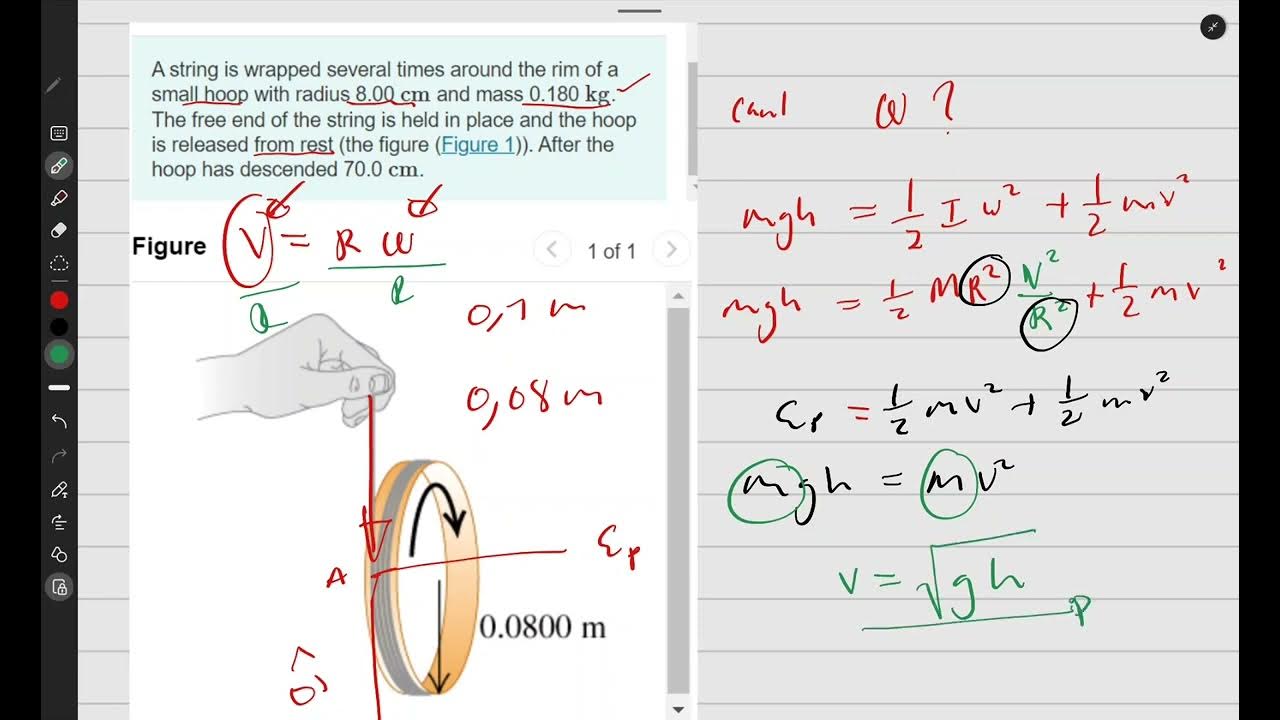 A string is wrapped several times around the rim of a
small hoop with radius 8.00 cm and mass 0.180 kg.
The free end of the string is held in place and the hoop
is released from rest (the figure (Figure 1)). After the
hoop has descended 70.0 cm.
V = R ω
R
Figure
1 of 1
0,7 m
0,08 m
A
Ep
0.0800 m
ω ?
mgh = 1/2 I ω² + 1/2 mv²
mgh = 1/2 MR² V²/R² + 1/2 mv²
Ep = 1/2 mv² + 1/2 mv²
mgh = mv²
v = √gh